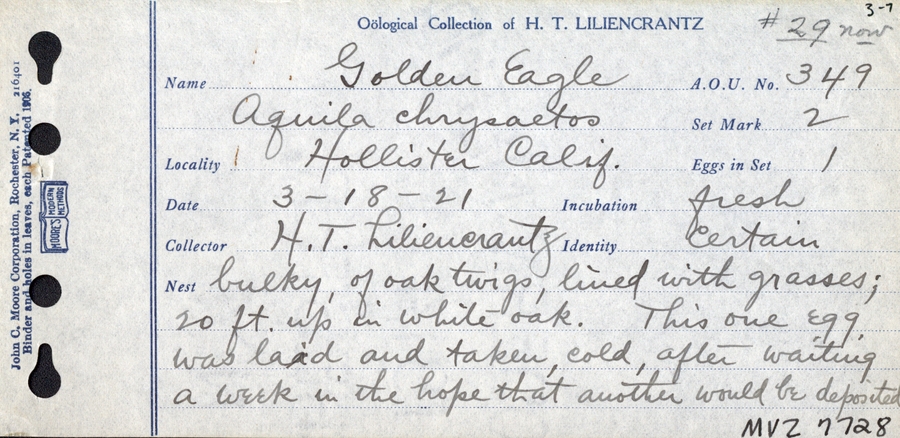 3-7
Oölogical Collection of H. T. LILIENCRANTZ #29 now
Name Golden Eagle A.O.U. No. 349
Aquila chrysaetos Set Mark 2
Locality Hollister Calif. Eggs in Set 1
Date 3-18-21 Incubation fresh
Collector H.T. Liliencrantz Identity Certain
Nest bulky, of oak twigs, lined with grasses;
20 ft. up in white oak. This one egg
was laid and taken, cold, after waiting
a week in the hope that another would be deposited
MVZ 7728
John C. Moore Corporation, Rochester, N. Y. 216401
Binder and holes in leaves, each Patented 1906.
MOORE'S MODERN METHODS